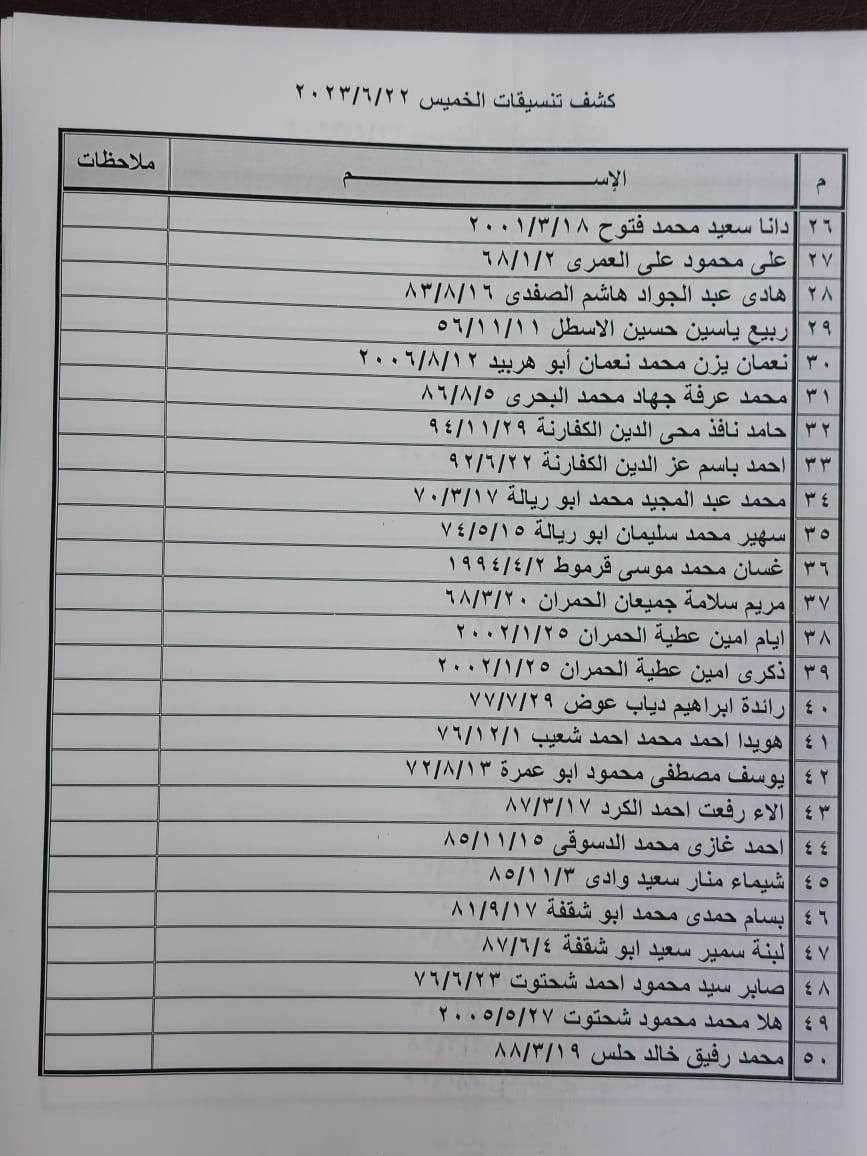 كشف تنسيقات الخميس ٢٠٢٣/٦/٢٢
م الإســـم ملاحظات
٢٦ دانا سعيد محمد فتوح ٢٠٠١/٣/١٨
٢٧ على محمود على العمرى ٦٨/١/٢
٢٨ هادى عبد الجواد هاشم الصفدى ٨٣/٨/١٦
٢٩ ربيع ياسين حسين الاسطل ٥٦/١١/١١
٣٠ نعمان يزن محمد نعمان أبو هربيد ٢٠٠٦/٨/١٢
٣١ محمد عرفة جهاد محمد البحرى ٨٦/٨/٥
٣٢ حامد نافذ محى الدين الكفارنة ٩٤/١١/٢٩
٣٣ احمد باسم عز الدين الكفارنة ٩٢/٦/٢٢
٣٤ محمد عبد المجيد محمد ابو ريالة ٧٠/٣/١٧
٣٥ سهير محمد سليمان ابو ريالة ٧٤/٥/١٥
٣٦ غسان محمد موسى قرموط ١٩٩٤/٤/٢
٣٧ مريم سلامة جميعان الحمران ٦٨/٣/٢٠
٣٨ ايام امين عطية الحمران ٢٠٠٢/١/٢٥
٣٩ ذكرى امين عطية الحمران ٢٠٠٢/١/٢٥
٤٠ رائدة ابراهيم دياب عوض ٧٧/٧/٢٩
٤١ هويدا احمد محمد احمد شعيب ٧٦/١٢/١
٤٢ يوسف مصطفى محمود ابو عمرة ٧٢/٨/١٣
٤٣ الاء رفعت احمد الكرد ٨٧/٣/١٧
٤٤ احمد غازى محمد الدسوقى ٨٥/١١/١٥
٤٥ شيماء منار سعيد وادى ٨٥/١١/٣
٤٦ بسام حمدى محمد ابو شقفة ٨١/٩/١٧
٤٧ لبنة سمير سعيد ابو شقفة ٨٧/٦/٤
٤٨ صابر سيد محمود احمد شحتوت ٧٦/٦/٢٣
٤٩ هلا محمد محمود شحتوت ٢٠٠٥/٥/٢٧
٥٠ محمد رفيق خالد حلس ٨٨/٣/١٩